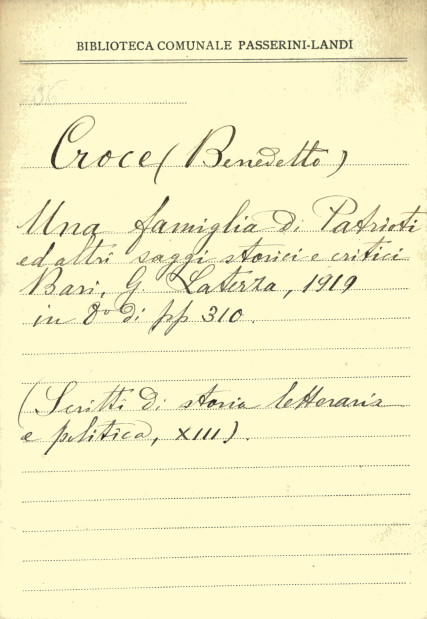 BIBLIOTECA COMUNALE PASSERINI-LANDI
Croce (Benedetto)
Una famiglia di Patrioti
ed altri saggi storici e critici
Bari, G. Laterza, 1919
in 8º di pp 310.
(Scritti di storia letteraria
e politica, XIII).